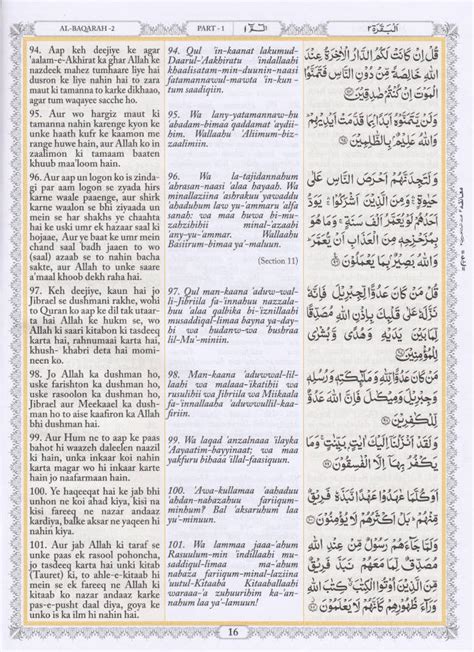 AL-BAQARAH -2
PART - 1
الٓمّٓ ١
اَلْبَقَرَة ٢
94. Aap keh deejiye ke agar
'aalam-e-Akhirat ka ghar Allah ke
nazdeek mahez tumhaare liye hai
duson ke liye nahin hai to zara
maut ki tamanna to karke dikhao,
agar tum waqayee sacche ho.
95. Aur wo hargiz maut ki
tamanna nahin karenge kyon ke
unke haath kufr ke kaamon me
range huwe hain, aur Allah ko in
zaalimon ki tamaam baaten
khuub maa'loom hain.
96. Aur aap un logon ko is zinda-
gi par aam logon se zyada hirs
karne waale paaenge, aur shirk
karne waalon se bhi zyada in
mein se har shakhs ye chaahta
hai ke uski umr ek hazaar saal ki
hojaae, Aur ye baat ke umr mein
chand saal badh jaaen to wo
(saal) azaab se to nahin bacha
sakte, aur Allah to unke saare
a'maal khoob dekh raha hai.
97. Keh deejiye, kaun hai jo
Jibrael se dushmani rakhe, wohi
to Quran ko aap ke dil tak utaar-
ta hai Allah ke hukm se, wo
Allah ki saari kitabon ki tasdeeq
karta hai, rahnumaai karta hai,
khush- khabri deta hai momi-
neen ko.
98. Jo Allah ka dushman ho,
uske farishton ka dushman ho,
uske rasoolon ka dushman ho aur
Jibrael aur Meekaael ka dush-
man ho to aise kaafiron ka Allah
bhi dushman hai.
99. Aur Hum ne to aap ke paas
bahot hi waazeh daleelen naazil
ki hain, unka inkaar koi nahin
karta magar wo hi inkaar karte
hain jo naafarmaan hain.
100. Ye haqeeqat hai ke jab bhi
unhon ne koi ahad kiya, kisi na
kisi fareeq ne nazar andaaz
kardiya, balke aksar ne yaqeen hi
nahin kiya.
101. Aur jab Allah ki taraf se
unke paas ek rasool pohoncha,
jo tasdeeq karta hai unki kitab
(Tauret) ki, to ahle-e-kitaab hi
mein se ek fareeq ne Allah ki
kitaab ko nazar andaaz karke
pas-e-pusht daal diya, goya ke wo
kuch jaante hi na the.
94. Qul 'in-kaanat lakumud-
Daarul-'Aakhiratu 'indallaahi
khaalisatam-min-duunin-naasi
fatamannawul-mawta 'in-kun-
tum saadiqiin.
95. Wa lany-yatamannaw-hu
'abadam-bimaa qaddamat 'aydii-
him. Wallaahu 'Aliimum-biz-
zaalimiin.
96. Wa la-tajidannahum
'ahrasan-naasi 'alaa hayaah. Wa
minallaziina 'ashrakuu yawaddu
'ahaduhum law yu-'ammaru 'alfa
sanah: wa maa huwa bi-mu-
zahzihihii minal-'azaabi
'any-yu-'ammar. Wallaahu
Basiirum-bimaa ya'-maluun.
(Section 11)
97. Qul man-kaana 'aduw-wal-
li-Jibriila fa-'innahuu nazzala-
huu 'alaa qalbika bi-'iznillaahi
musaddiqal-limaa bayna ya-day-
hi wa hudanw-wa bushraa
lil-Mu'-miniin.
98. Man-kaana 'aduwwal-lil-
laahi wa malaaa-'ikatihii wa
rusulihii wa Jibriila wa Miikaala
fa-'innallaaha 'aduwwul-lil-kaa-
firiin.
99. Wa laqad 'anzalnaaa 'ilayka
'Aayaatim-bayyinaat; wa maa
yakfuru bihaaa 'illal-faasiquun.
100. 'Awa-kullamaa 'aahaduu
'ahdan-nabazahuu fariiqum-
minhum? Bal 'aksaruhum laa
yu'-minuun.
101. Wa lammaa jaaa-'ahum
Rasuulum-min 'indillaahi mu-
saddiqul-limaa ma-'ahum
nabaza fariiqum-minal-laziina
'uutul-Kitaab: Kitaaballaahi
waraaa-'a zuhuurihim ka-'an-
nahum laa ya'-lamuun!
قُلْ اِنْ كَانَتْ لَكُمُ الدَّارُ الْاٰخِرَةُ عِنْدَ
اللّٰهِ خَالِصَةً مِّنْ دُوْنِ النَّاسِ فَتَمَنَّوُا
الْمَوْتَ اِنْ كُنْتُمْ صٰدِقِيْنَ
وَلَنْ يَّتَمَنَّوْهُ اَبَدًۢا بِمَا قَدَّمَتْ اَيْدِيْهِمْ
وَاللّٰهُ عَلِيْمٌۢ بِالظّٰلِمِيْنَ
وَلَتَجِدَنَّهُمْ اَحْرَصَ النَّاسِ عَلٰى
حَيٰوةٍ وَمِنَ الَّذِيْنَ اَشْرَكُوْا يَوَدُّ
اَحَدُهُمْ لَوْ يُعَمَّرُ اَلْفَ سَنَةٍ وَمَا هُوَ
بِمُزَحْزِحِهٖ مِنَ الْعَذَابِ اَنْ يُّعَمَّرَ
وَاللّٰهُ بَصِيْرٌۢ بِمَا يَعْمَلُوْنَ
قُلْ مَنْ كَانَ عَدُوًّا لِّجِبْرِيْلَ فَاِنَّهٗ
نَزَّلَهٗ عَلٰى قَلْبِكَ بِاِذْنِ اللّٰهِ مُصَدِّقًا
لِّمَا بَيْنَ يَدَيْهِ وَهُدًى وَّبُشْرٰى
لِلْمُؤْمِنِيْنَ
مَنْ كَانَ عَدُوًّا لِّلّٰهِ وَمَلٰٓئِكَتِهٖ وَرُسُلِهٖ
وَجِبْرِيْلَ وَمِيْكٰىلَ فَاِنَّ اللّٰهَ عَدُوٌّ
لِّلْكٰفِرِيْنَ
وَلَقَدْ اَنْزَلْنَآ اِلَيْكَ اٰيٰتٍۢ بَيِّنٰتٍ وَمَا
يَكْفُرُ بِهَآ اِلَّا الْفٰسِقُوْنَ
اَوَكُلَّمَا عٰهَدُوْا عَهْدًا نَّبَذَهٗ فَرِيْقٌ
مِّنْهُمْ بَلْ اَكْثَرُهُمْ لَا يُؤْمِنُوْنَ
وَلَمَّا جَآءَهُمْ رَسُوْلٌ مِّنْ عِنْدِ اللّٰهِ
مُصَدِّقٌ لِّمَا مَعَهُمْ نَبَذَ فَرِيْقٌ مِّنَ
الَّذِيْنَ اُوْتُوا الْكِتٰبَ كِتٰبَ اللّٰهِ
وَرَآءَ ظُهُوْرِهِمْ كَاَنَّهُمْ لَا يَعْلَمُوْنَ
16